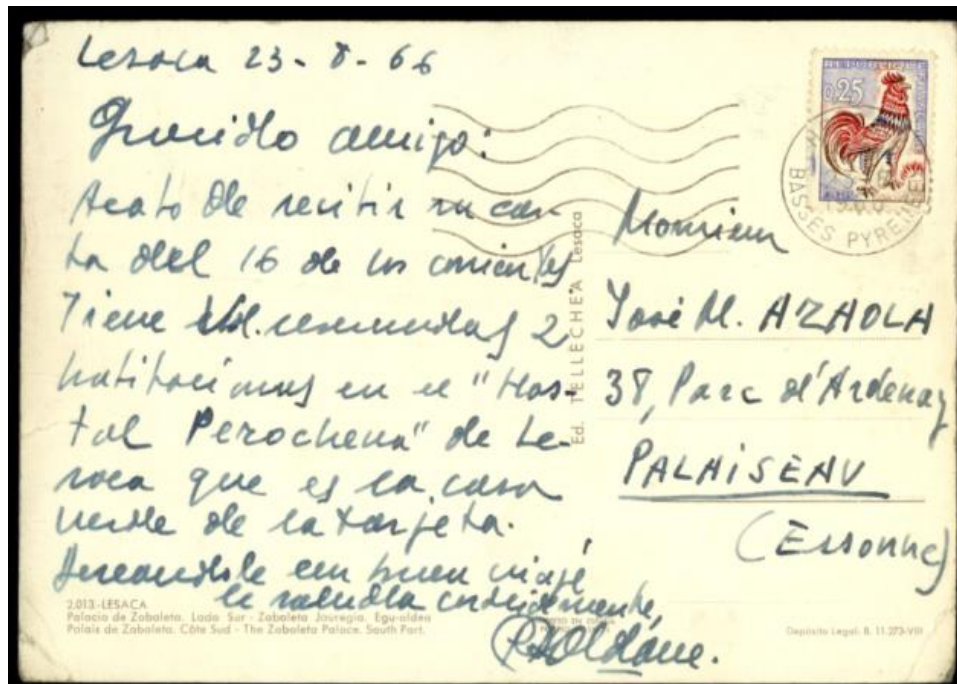 Lesaca 23-8-66
Querido amigo:
Acabo de recibir su car-
ta del 16 de los corrientes.
Tiene Vd. reservadas 2
habitaciones en el "Hos-
tal Perochena" de Le-
saca que es la casa
verde de la tarjeta.
Deseandole un buen viaje
le saluda cordialmente,
0.25
BASSES PYRENEES
Monsieur
José M. AZAOLA
38, Parc d'Ardenay
PALAISEAU
(Essonne)
Ed. TELLECHEA Lesaca
2.013-LESACA
Palacio de Zabaleta. Lado Sur - Zabaleta Jauregia. Egu-aldea
Palais de Zabaleta. Côte Sud - The Zabaleta Palace. South Part.
Depósito Legal: B. 11.273-VIII